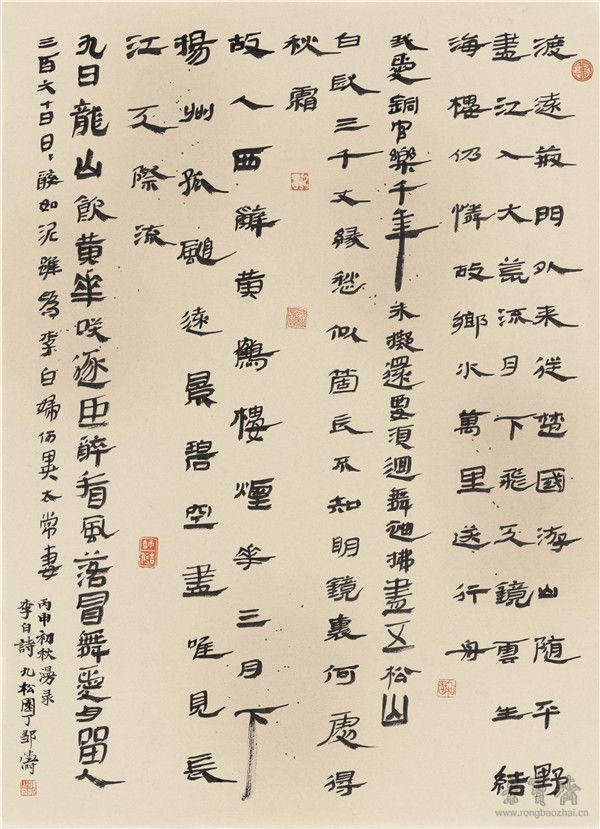 渡遠荊門外来從楚國游山随平野
盡江入大荒流月下飛天鏡雲生結
海樓仍憐故鄉水萬里送行舟
我愛銅官樂千年未擬還要須迴舞袖拂盡五松山
白髮三千丈緣愁似箇長不知明鏡裏何處得
秋霜
故人西辭黄鶴樓煙華三月下
揚州孤颿遠景碧空盡唯見長
江天際流
九日龍山飲黄華咲逐臣醉看風落冒舞愛月留人
三百六十日日〻醉如泥雖為李白婦何異太常妻
丙申初秋漫录
李白詩九松園丁邹濤
榮寶齋
www.rongbaozhai.cn